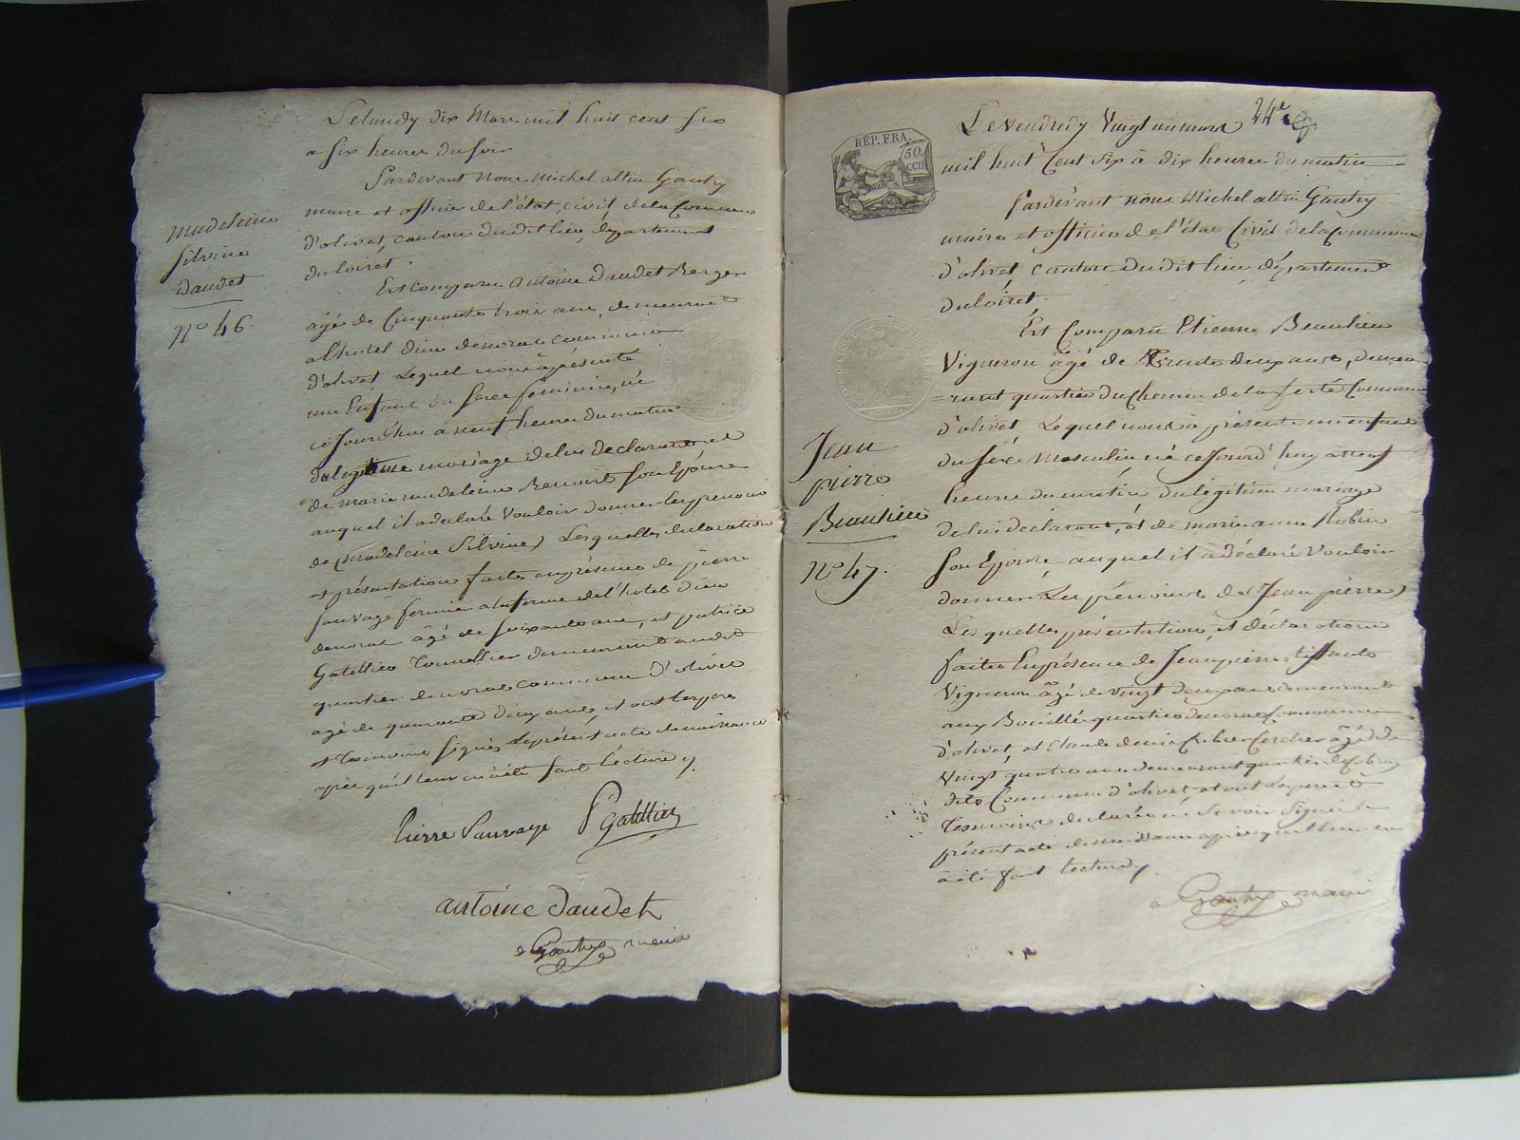 Le lundy dix Mars mil huit cent six
a six heures du soir
Pardevant Nous Michel altin Gautry
maire et officier de l'état civil de la Commune
d'olivet, canton dudit lieu, département
du loiret.
Est Comparu Antoine Daudet Berger
âgé de Cinquante trois ans, demeurant
a l'hotel dieu de commune
d'olivet Lequel nous à présenté
un Enfant du sexe féminin, né
ce Jourd'hui a neuf heures du matin
du légitime mariage de lui declarant et
de marie madeleine Son Epouse
auquel il a declaré Vouloir donner les prenoms
de (madeleine Silvine) Lesquelles declaration
et présentation faites en présence de pierre
sauvage fermier a la ferme de l'hotel dieu
âgé de soixante ans, et patrice
Gatellier Tonnellier demeurant audit
quartier de commune D'olivet
agé de quarante deux ans, et ont les pere
et Temoins signés le présent acte de naissance
après qu'il leur en à été fait Lecture
Pierre Sauvage P Gatellier
antoine daudet
Gautry maire
madeleine
silvine
daudet
No 46.
Le Vendredy Vingt un mars 24e
mil huit Cent six à dix heures du matin
Pardevant nous Michel altin Gautry
maire et officier de l'état Civil de la Commune
d'olivet canton dudit lieu département
du loiret.
Est Comparu Etienne Beaulieu
Vigneron âgé de Trente deux ans, demeu
=rant quartier du Chemin de la ferté Commune
d'olivet Lequel nous à présenté un enfant
du sexe Masculin né ce Jourd'huy a neuf
heures du matin du légitime mariage
de lui déclarant, et de marie anne Robin
Son Epouse auquel il a déclaré Vouloir
donner Les prénoms de (Jean pierre)
Lesquelles présentation, et déclaration
faites En présence de Jean pierre
Vigneron âgé de vingt deux ans demeurant
aux quartier de commune
d'olivet, et Claude denis âgé de
Vingt quatre ans demeurant quartier
dite Commune d'olivet et ont Le pere et
Temoins declarés ne Savoir Signer le
présent acte de naissance après qu'il leur en
à été fait lecture
Gautry maire
RÉP. FRA.
50
Jean
pierre
Beaulieu
No 47.